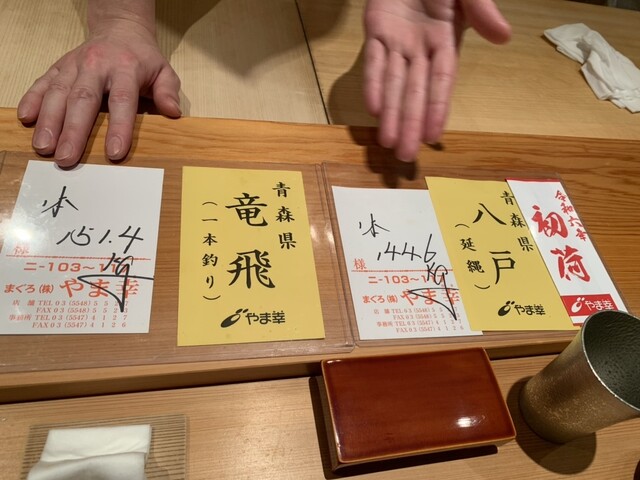 本
151.4
kg
様
ニ-103~
まぐろ(株)やま幸
店舗 TEL 03 (5548) 5 5
FAX 03 (5548) 5 5 2
事務所 TEL 03 (5547) 4 1 2 7
FAX 03 (5547) 4 1 2 6
青森県
竜飛
(一本釣り)
やま幸
本
144.6
kg
様
ニ-103~
まぐろ(株)やま幸
店舗 TEL 03 (5548) 5
FAX 03 (5548) 5 5 2
事務所 TEL 03 (5547) 4 1 2 7
FAX 03 (5547) 4 1 2 6
青森県
八戸
(延縄)
やま幸
令和六年
初荷
やま幸